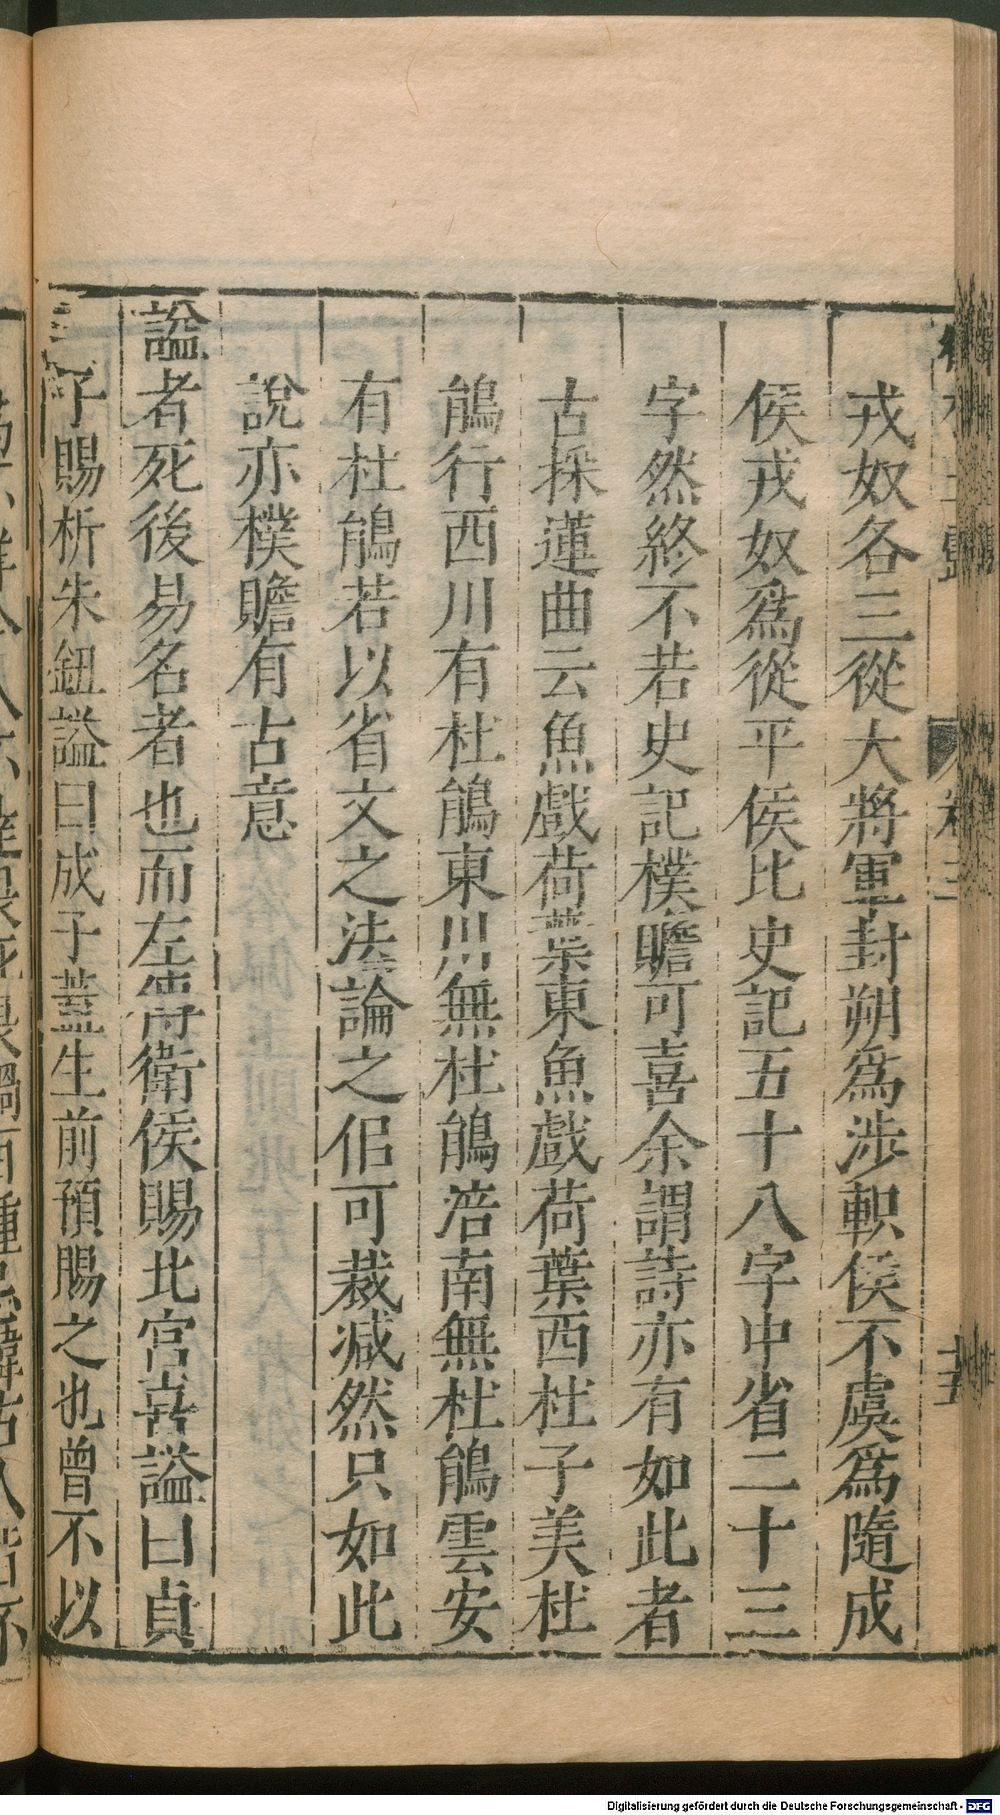 戎奴各三從大將軍封朔爲涉軹侯不虞爲隨成
侯戎奴爲從平侯比史記五十八字中省二十三
字然終不若史記樸贍可喜余謂詩亦有如此者
古採蓮曲云魚戲荷葉東魚戲荷葉西杜子美杜
鵑行西川有杜鵑東川無杜鵑涪南無杜鵑雲安
有杜鵑若以省文之法論之似可裁减然只如此
說亦樸贍有古意
謚者死後易名者也而左傳衛侯賜北宮喜謚曰貞
子賜析朱鉏謚曰成子蓋生前預賜之也曾不以
卷三
十五
Digitalisierung gefördert durch die Deutsche Forschungsgemeinschaft - DFG